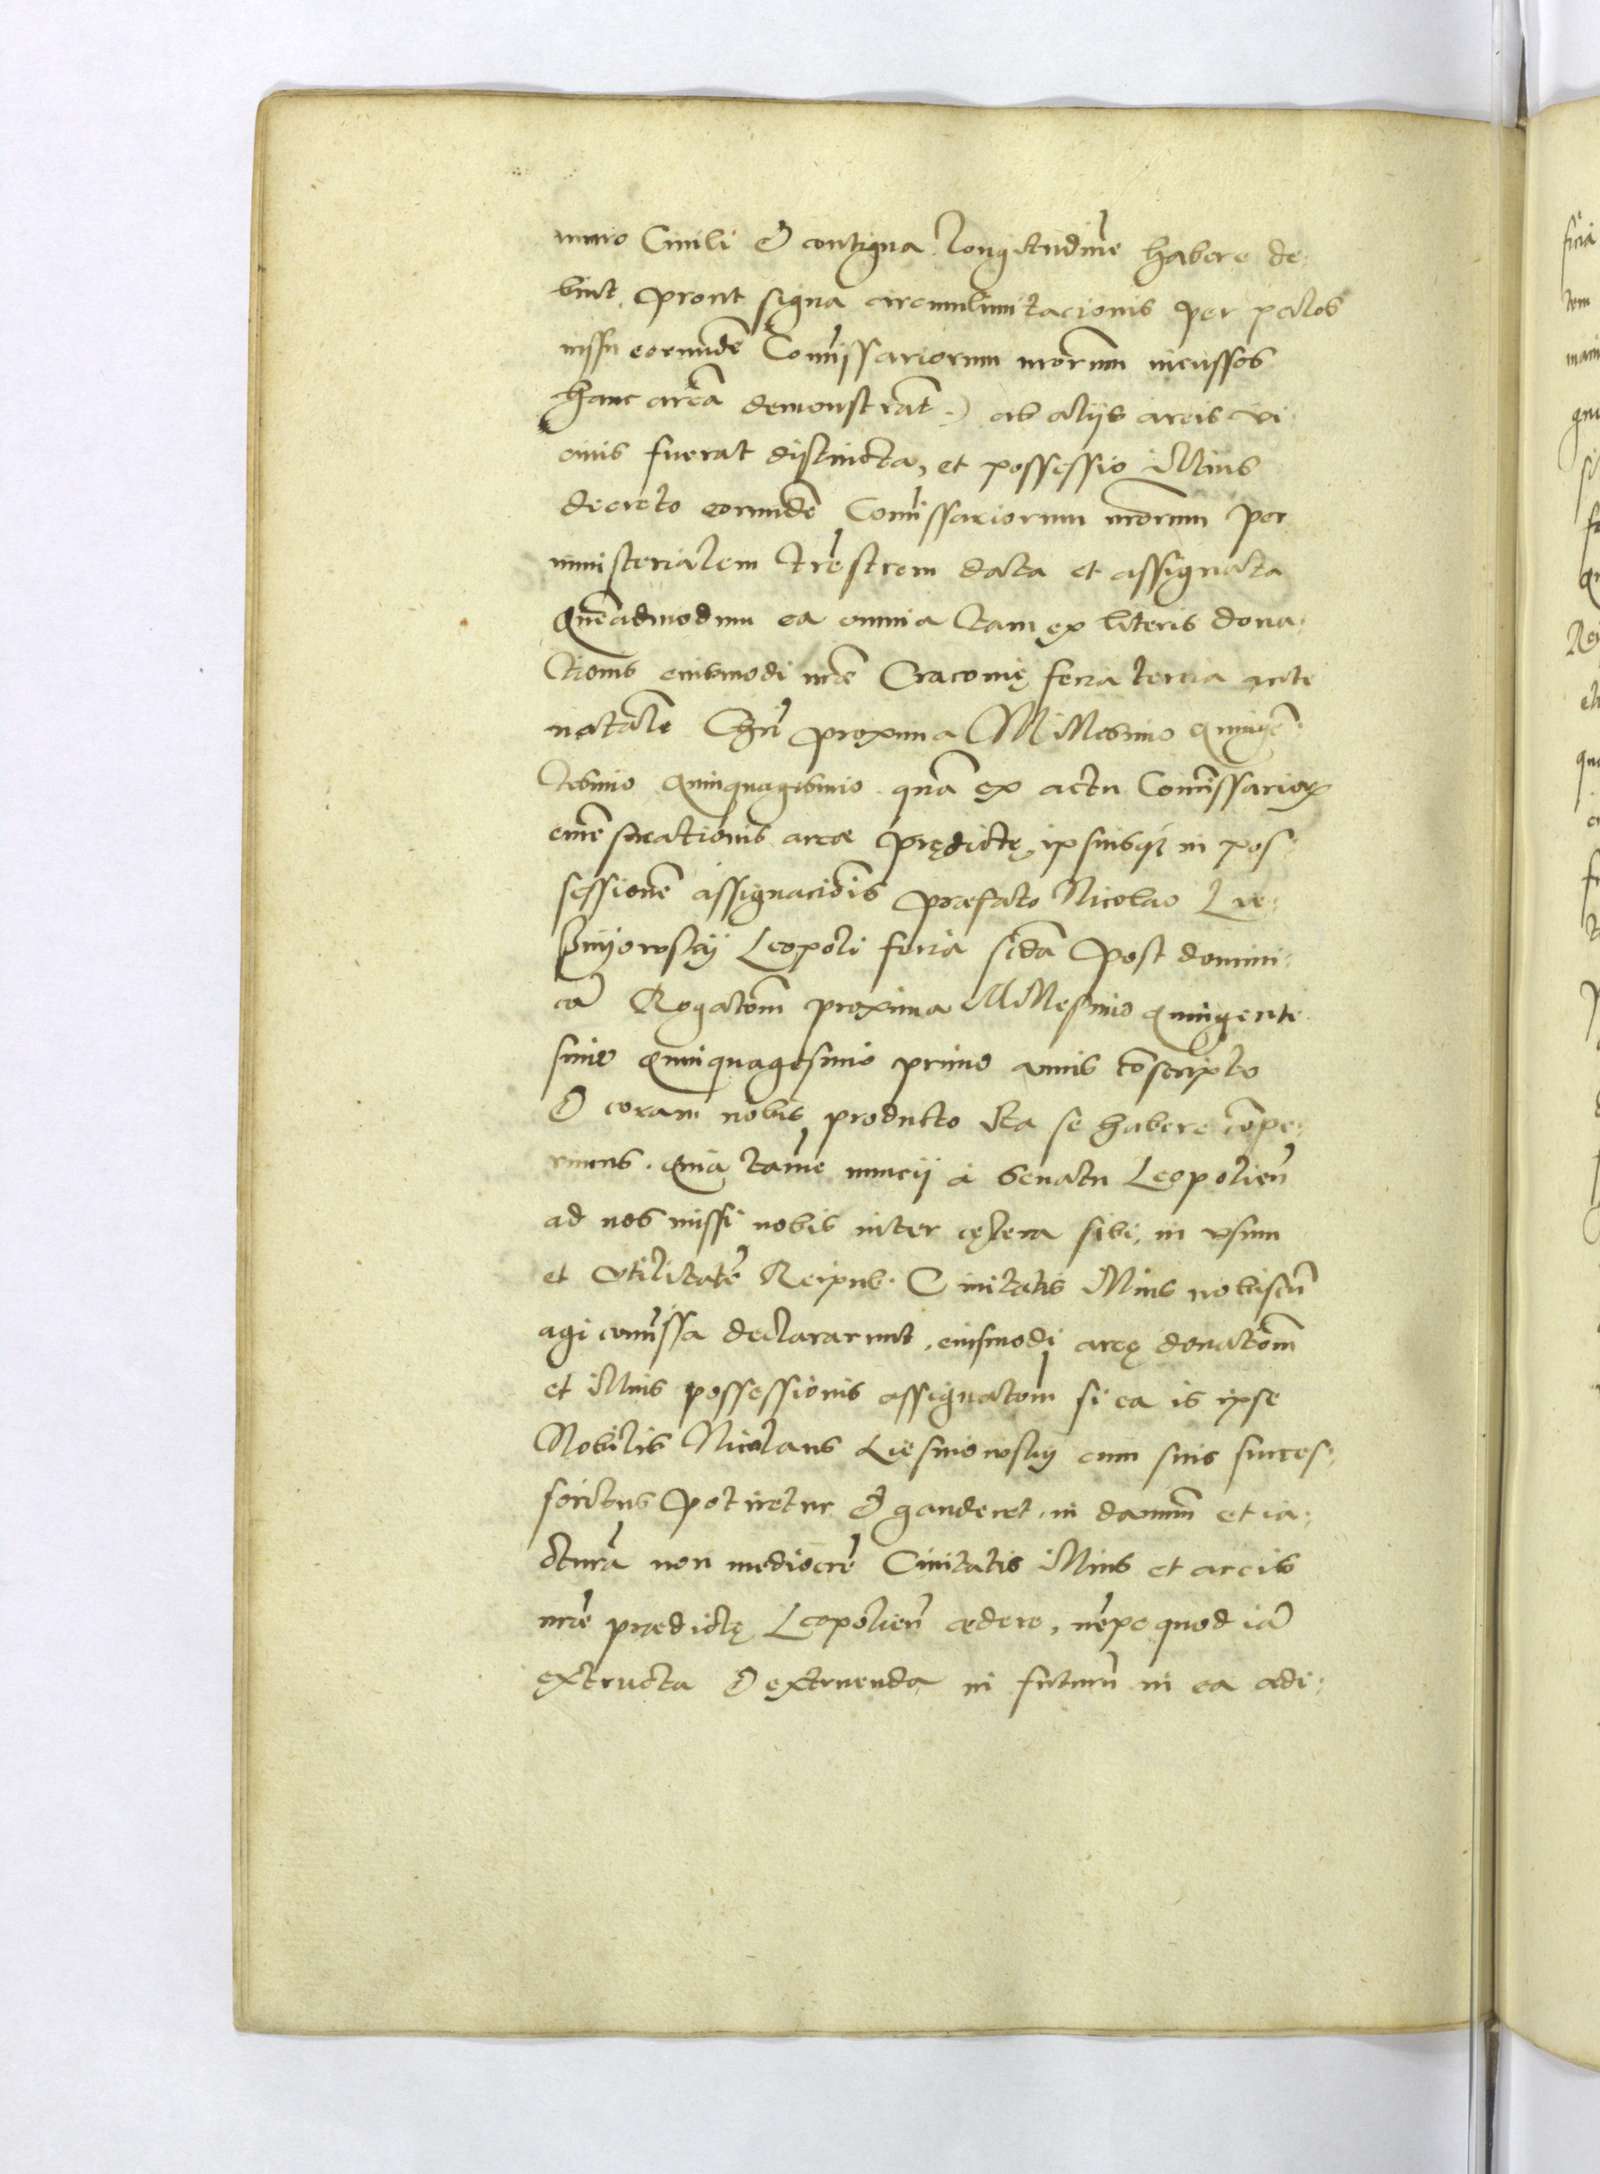 muro Ciuili & contigua longitudinē habere de:
buit, prout signa circumlimitacionis per palos
iussu eorundē Com̄issariorum nr̄orum incussos
hanc areā demonstrāt) ab aliis areis vi
cinis fuerat distincta, et possessio illius
decreto eorundē Com̄issariorum nr̄orum per
ministerialem trr̄estrem data et assignata
Quēadmodum ea omnia tam ex literis dona:
tionis eiusmodi nr̄e Cracouię feria tercia ante
natalē Chr̄i proxima Millesimo quingē
tesimo quinquagesimo quā ex actu Com̄issarioꝝ
emēsurationis areæ prędictę ipsiusqꝫ in pos:
sessionē assignaciōis præfato Nicolao Lye:
Leopoli feria scd̄a post domini:
cā Rogatiōm proxima Millesimo quingente
simo quinquagesimo primo annis cōscripto
& coram nobis producto ita se habere cōpe:
rimus. Quia tamē nuncii a Senatu Leopolieñ
ad nos missi nobis inter cętera sibi, in vsum
et vtilitatē Reipub. Ciuitatis illius nobiscū
agi com̄issa declararunt, eiusmodi aręę donatiōm
et illius possessionis assignatiom si ea is ipse
Nobilis Nicolaus Liesniowsky cum suis succes:
soribus potiretur & gauderet, in damnū et ia:
cturā non mediocrē Ciuitatis illius et arcis
nr̄e prædictę Leopolieñ cedere, nēpe quod iā
extructa & extruenda in futurū in ea ædi: